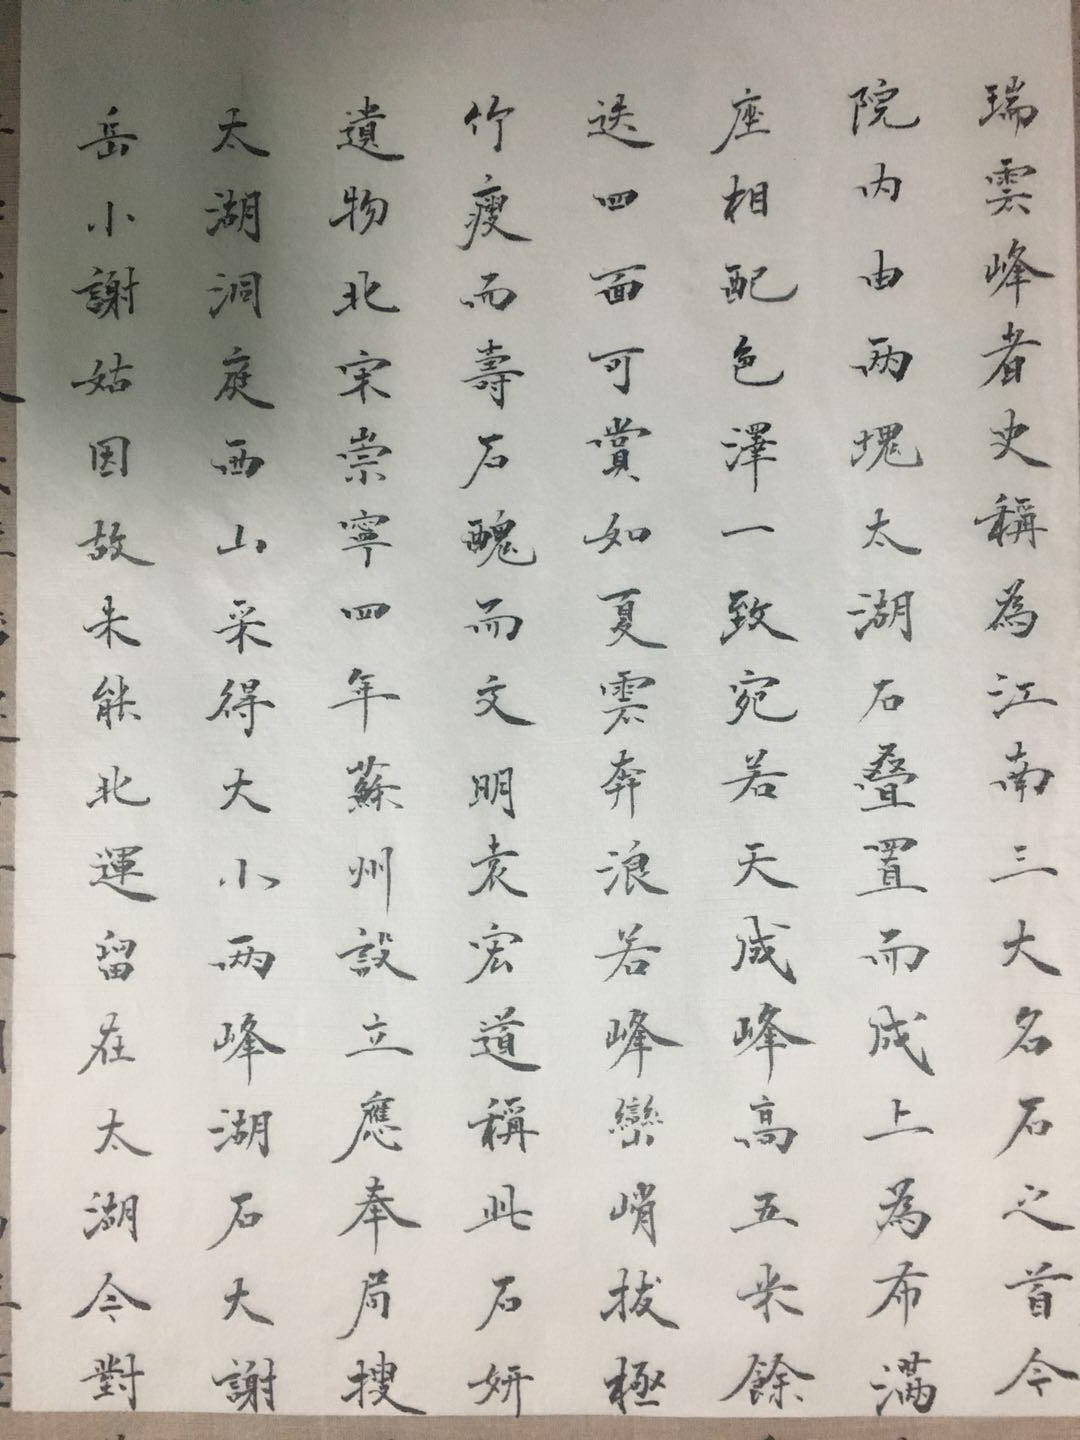 瑞雲峰者史稱為江南三大名石之首今
院内由兩塊太湖石叠置而成上為布滿
座相配色澤一致宛若天成峰高五米餘
迭四面可賞如夏雲奔浪若峰巒峭拔極
竹瘦而壽石醜而文明袁宏道稱此石妍
遺物北宋崇寧四年蘇州設立應奉局搜
太湖洞庭西山采得大小兩峰湖石大謝
岳小謝姑因故未能北運留在太湖今對